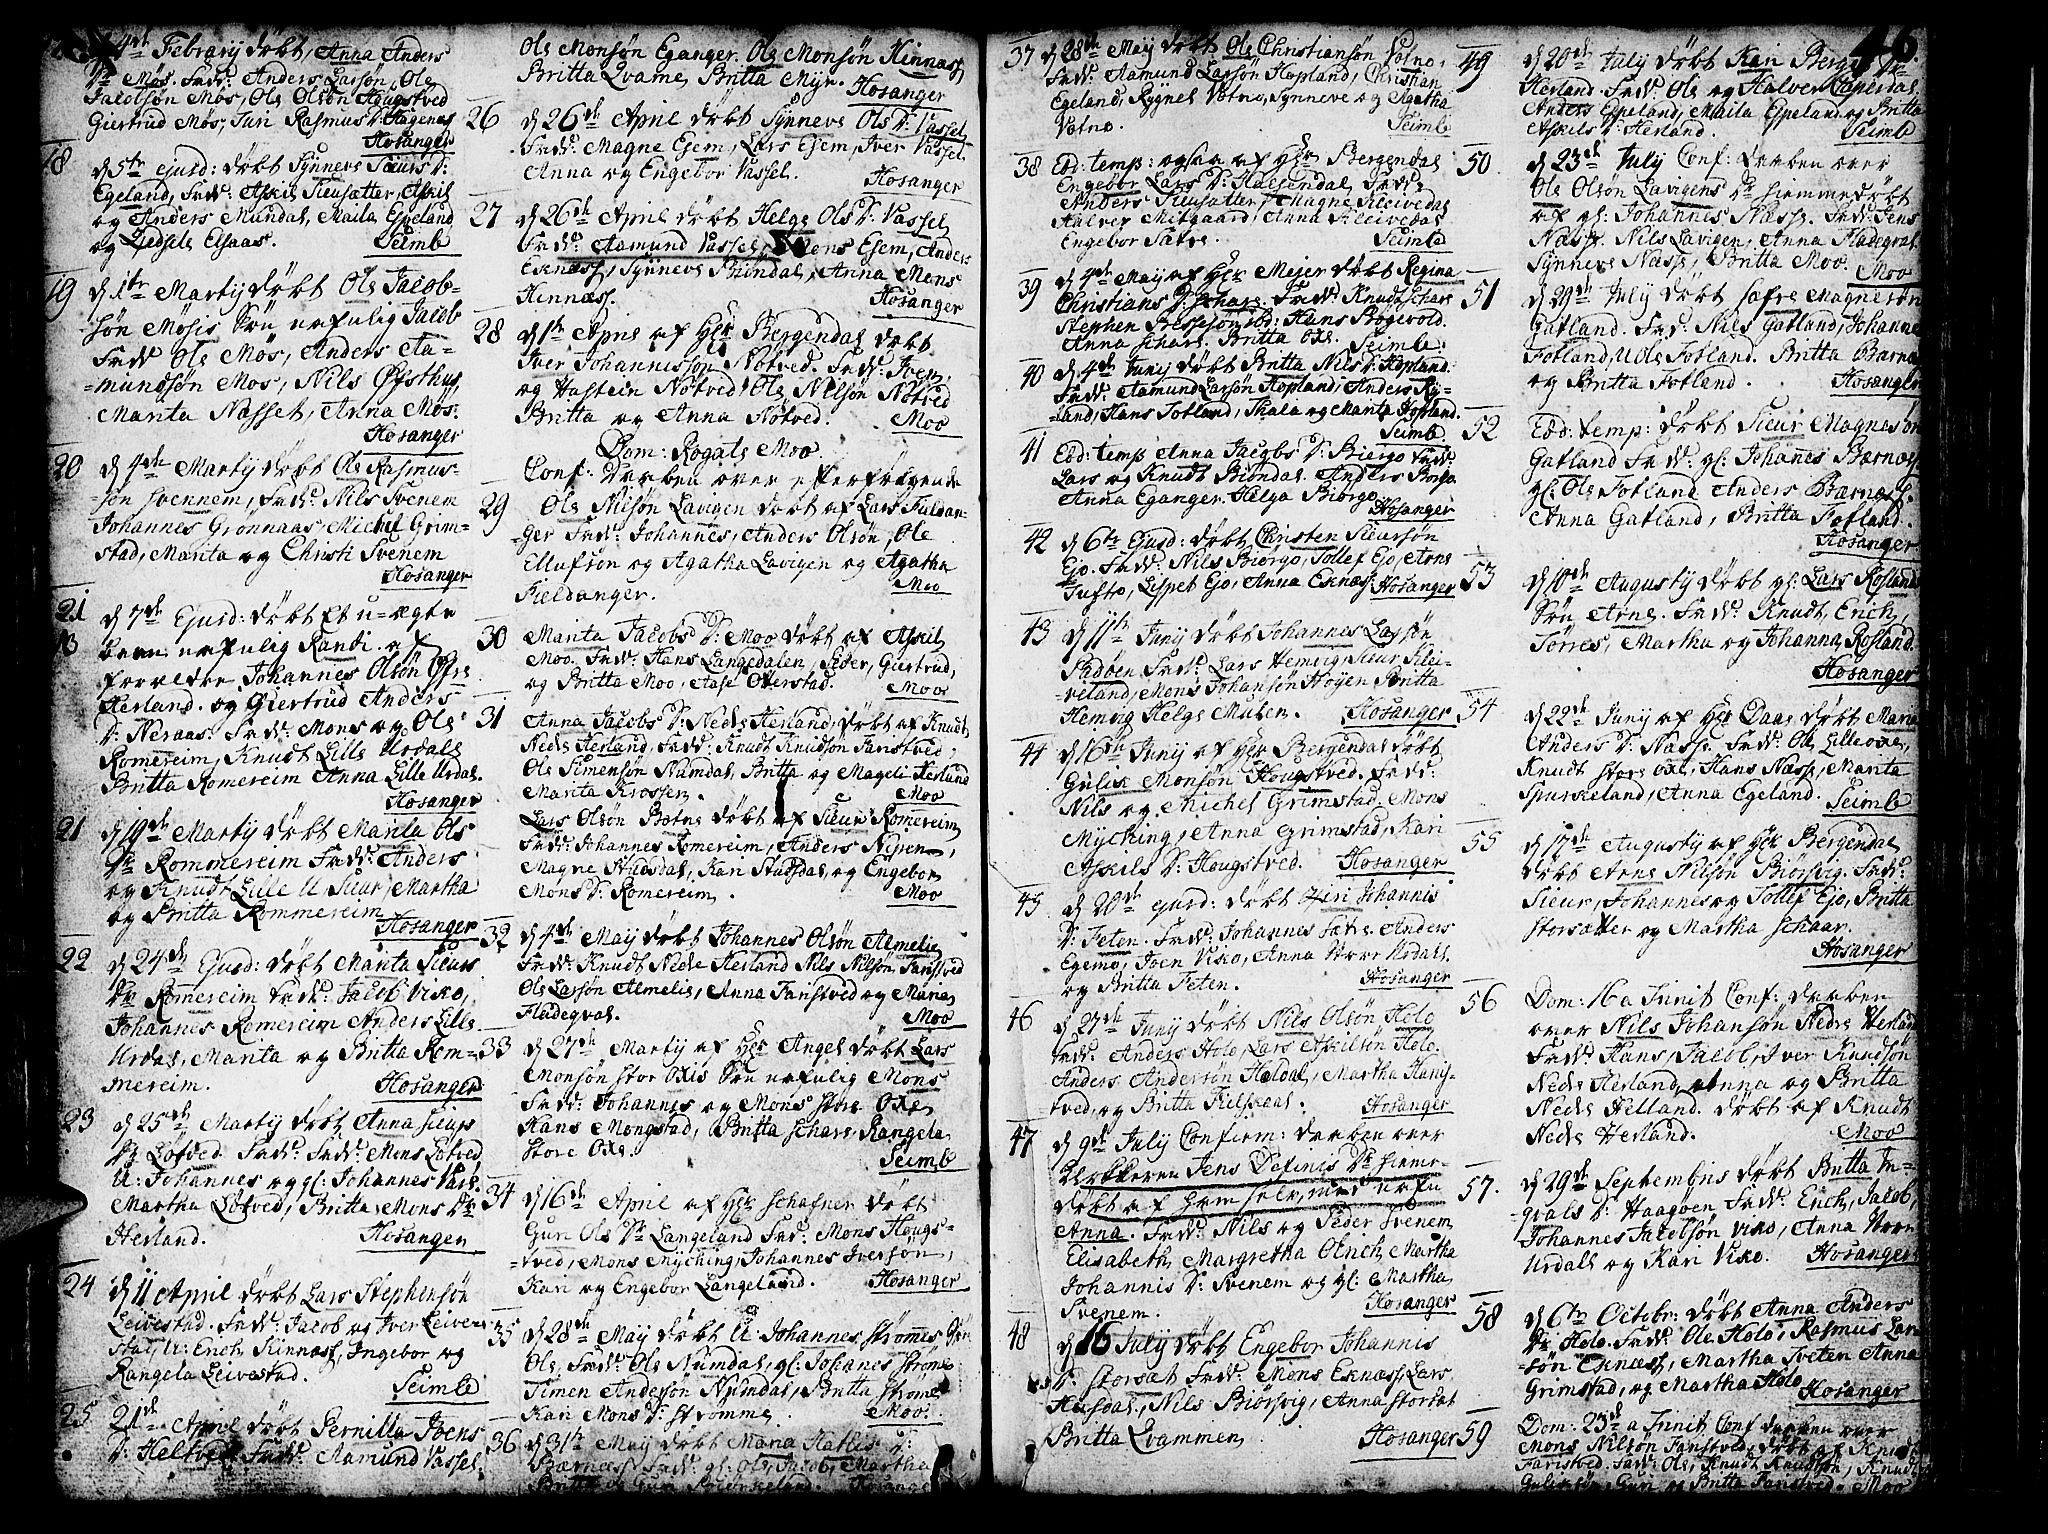 4de Febrarij döbt Anna Anders
Dr. Mös. Fadd: Anders Larsön, Ole
Jacobsön Mös, Ole Olsön Hougstved
Giertrud Mös, Turi Rasmus Dr. Hagenæs
Hosanger
18
d 5te ejusd: döbt Synneve Sieurs Dr:
Egeland, Fadd: Askil Sieusætter, Askil
og Anders Mundal, Maila Espeland
og Zidsele Elsaas. Seimb
19
d 1te Martij döbt Ole Jacob-
sön Mösis Sön nafnlig Jacob
Fadd: Ole Mös, Anders Aa-
mundsön Mos, Nils Öfsthus,
Marita Nasset, Anna Mös.
Hosanger
20
d 4de Martij döbt Ole Rasmus-
sön Svennem, Fadd: Nils Svenem
Johannes Grönnaas Michel Grim-
stad, Marita og Christi Svenem
Hosanger
21
d 7de Ejusd: döbt Et u-ægte
barn nafnlig Randi af
forældre Johannes Olsön Öfre
Herland og Giertrud Anders
Dr. Neraas. Fadd: Mons og Ole
Romereim, Knudt Lille Urdale
Britta Romereim Anna Lille Urdal.
Hosanger
21
d 19de Martij döbt Marita Ols
Dr. Rommereim Fadd: Anders
og Knudt Lille U Sieur, Martha
og Britta Rommereim
Hosanger
22
d 24de Ejusd: döbt Marita Sieurs
Dr. Romereim Fadd: Jacob Viko,
Johannes Romereim Anders Lille
Urdal, Marita og Britta Rom-
mereim. Hosanger
23
d 25de Martij döbt Anna Sieurs
Dr. Lötved. Fadd: Mons Lötved
U: Johannes og gl: Johannes
Martha Lötved, Britta Mons Dr.
Herland. Hosanger
24
d 11 April döbt Lars Stephensön
Leivestad. Fadd: Jacob og Iver Leive-
stad, U: Erich Hinnæss, Ingebor og
Rangela Leivestad. Seimb
25
21de April döbt Pernilla Joens
Dr. Fadd: Aamund Vassel,
Ole Monsön Eganger. Ole Monsön Hinnæss
Britta Qvame, Britta Mijr. Hosanger
26
d 26de April döbt Synneve Ols Dr: Vassel
Fadd: Magne Esem, Lars Esem, Iver Vassel.
Anna og Engebor Vassel. Hosanger
27
d 26de April döbt Helge Ols Dr. Vassel
Fadd: Aamund Vassel, Mons Esem, Anders
Eknæss, Synneve Brundal, Anna Mons
Hinnæss. Hosanger
28
d 1te April af Hr Bergendal döbt
Iver Johannissön Nötved. Fadd: Iver,
og Hastein Nötved Ole Nilsön Nötved
Britta og Anna Nötved. Moo
Dom: Rogate Moo
Conf: Daaben over efterfölgende
29
Ole Nilsön Lavigen döbt af Lars Fieldan-
ger Fadd: Johannes, Anders Olsön, Ole
Ellufsön og Agatha Lavigen og Agatha
Fieldanger. Moo
30
Marita Jacobs Dr. Moo döbt af Askil
Moo. Fadd: Hans Langedalen, Peder, Giertrud,
og Britta Moo, Aase Oterstad. Moo
31
Anna Jacobs Dr. Nedre Herland, döbt af Knudt
Nedre Herland, Fadd: Knudt Knudsön Fanstved,
Ole Simensön Numdal, Britta og Mageli Herland
Marita Krossen. Moo
Lars Olsön Botne döbt af Sieur Romereim
Fadd: Johannes Romereim, Anders Nijren,
Magne Studsdal, Kari Studsdal, og Engebor
Mons Dr. Romereim. Moo
32
d 4de Maij döbt Johannes Olsön Almelie
Fadd: Knudt Nedre Herland Nils Nilsön Fanstved
Ole Larsön Almelie, Anna Fanstved og Maria
Fladeqval. Moo
33
d 27de Martij af Hr Angel döbt Lars
Monsön Stor Oxis Sön nafnlig Mons
Fadd: Johannes og Mons Store Oxe
Hans Mongstad, Britta Schare Rangela
Store Oxe. Seimb
34
d 16de April af Hr Schafner döbt
Guri Ols Dr. Langeland Fad: Mons Hougs-
tved, Mons Mijching, Johannes Iversön,
Kari og Engebor Langeland. Hosanger
35
d 28de Maij döbt U: Johannes Strömes Sön
Ole, Fadd: Ole Numdal, gl: Johanes Ströme
Simen Andersön Numdal, Britta Ströme
Kari Mons Dr. Strömme. Moo.
36
d 31te Maij döbt Maria Hatlis Dr.
Bærnæss Fadd: gl: Ole, Jacob, Martha
Britta og Guri Spurkeland. Hosanger
37
d 28de Maij döbt Ole Christiansön Votno,
Fadd: Aamund Larsön Hopland, Christian
Egeland, Rygnel Votno, Synneve og Agatha
Votno. Seimb
38
Eod: temp: ogsaa af Hr Bergendal
Engebor Lars Dr. Halsendal, Fadd:
Anders Sieusætter, Magne Kleivedal
Halver Mitgaard, Anna Kleivedal
Engebor Sætre. Seimb
39
d 4de Maij af Hr Meijer döbt Regina
Christians Dr. Schare. Fadd: Knudt Schare
Stephen Hans Bogevold.
Anna Schare. Britta Oxe. Seimb.
40
d 4de Junij döbt Britta Nils Dr. Hopland:
Fadd: Aamund Larsön Hopland, Anders Ry-
land, Hans Totland, Thala og Marita Hopland.
Seimb
41
Eod: temp Anna Jacobs Dr. Biörgo Fadd:
Lars og Knudt Bröndal. Anders Börgo
Anna Eganger. Helga Biörgo. Hosanger
42
d 6te Ejusd: döbt Christen Sieursön
Ejo. Fadd: Nils Biörgo, Tollef Ejo, Arne
Tufto, Lispet Ejo, Anna Eknæss. Hosanger
43
d 11te Junij döbt Johannes Larsön
Padöen Fadd: Lars Hemvig, Sieur Klei-
veland, Mons Johansön Höyen Britta
Hemvig Helge Mulen. Hosanger
44
d 16de Junij af Hr Bergendal döbt
Gulik Monsön Hougstved. Fadd:
Nils og Michel Grimstad, Mons
Mijching, Anna Grimstad, Kari
Askils Dr. Hougstved. Hosanger
45
d 20de ejusd: döbt Siri Johannis
Dr. Feten. Fadd: Johannes Sætre Anders
Egemo, Joen Viko, Anna Stoor Urdal.
og Britta Feten. Hosanger
46
d 27de Junij döbt Nils Olsön Holo
Fadd: Anders Holo, Lars Askilsön Holo.
Anders Andersön Heldal, Martha Hanj-
tved, og Britta Kielsaas. Hosanger
47
d 9de Julij Confirm: daaben over
Klokkeren Jens Definis Dr. hieme-
döbt af ham selv, med nafn
Anna. Fadd: Nils og Peder Svenem
Elisabeth Margretha Olrich, Martha
Johannis Dr. Svenem og gl: Martha
Svenem. Hosanger
48
d 16 Julij döbt Engebor Johannis
Dr. Storsæt Fadd: Mons Eknæss Lars
Husdal, Nils Biörsvig, Anna Storsæt
Britta Qvammen Hosanger
46.
49
d 20de Julij döbt Kari Berges Dr.
Herland. Fadd: Ole og Halver Taperdal.
Anders Espeland, Maila Espeland og Britta
Askils Dr. Herland. Seimb
50.
d 23de Julij Conf: daaben over
Ole Olsön Lavigens Dr hiemmedöbt
af gl: Johannes Næss. Fadd: Jens
Næss. Nils Lavigen, Anna Fladeqval
Synneve Næss, Britta Moo. Moo
51
d 29de Julij döbt Safre Magnesön
Gatland. Fad: Nils Gatland, Johanne
Fotland, U Ole Fotland. Britta Barnæs
og Britta Fotland. Hosanger
52
Eod: temp: döbt Sieur Magnesön
Gatland Fadd: gl: Johannes Bærnæss
gl: Ole Fotland Anders Bærnæss.
Anna Gatland, Britta Fotland.
Hosanger
53
d 10de Augustij döbt gl: Lars Rosland
Sön Arne. Fadd: Knudt, Erich,
Törres, Martha og Johanna Rosland.
Hosanger
54
d 22de Junij af Hr Daae döbt Maria
Anders Dr. Næss. Fadd: Ole Lilleoxe,
Knudt Store Oxe, Hans Næss, Marita
Spurkeland, Anna Egeland. Seimb
55
d 17de Augustij af Hr Bergendal
döbt Arne Nilsön Biörsvig. Fadd:
Sieur, Johannes og Tollef Ejo, Britta
Storsætter og Martha Schaar.
Hosanger
56
Dom: 16 a Trinit Conf: daaben
over Nils Johansön Nedre Herland
Fadd: Hans, Jacob, Iver Knudsön
Nedre Herland, Anna og Britta
Nedre Helland. döbt af Knudt
Nedre Herland. Moo
57.
d 29de Septembris döbt Britta In-
gvals Dr. Haagöen Fadd: Erich, Jacob,
Johannes Jacobsön Viko, Anna Stoor
Urdale og Kari Viko. Hosanger
58
d 6te Octobr: döbt Anna Anders
Dr. Holo. Fadd: Ole Holo, Rasmus Lar-
sön Eknæss, Martha Tveten Anna
Grimstad, og Martha Holo Hosanger
59
Dom: 23de a Trinit Conf daaben over
Mons Nilsön Fanstved, döbt af Knudt
Faristved. Fad: Ole, Knudt Knudsön, Knudt
Guliksön, Guri og Britta Faristved. Moo